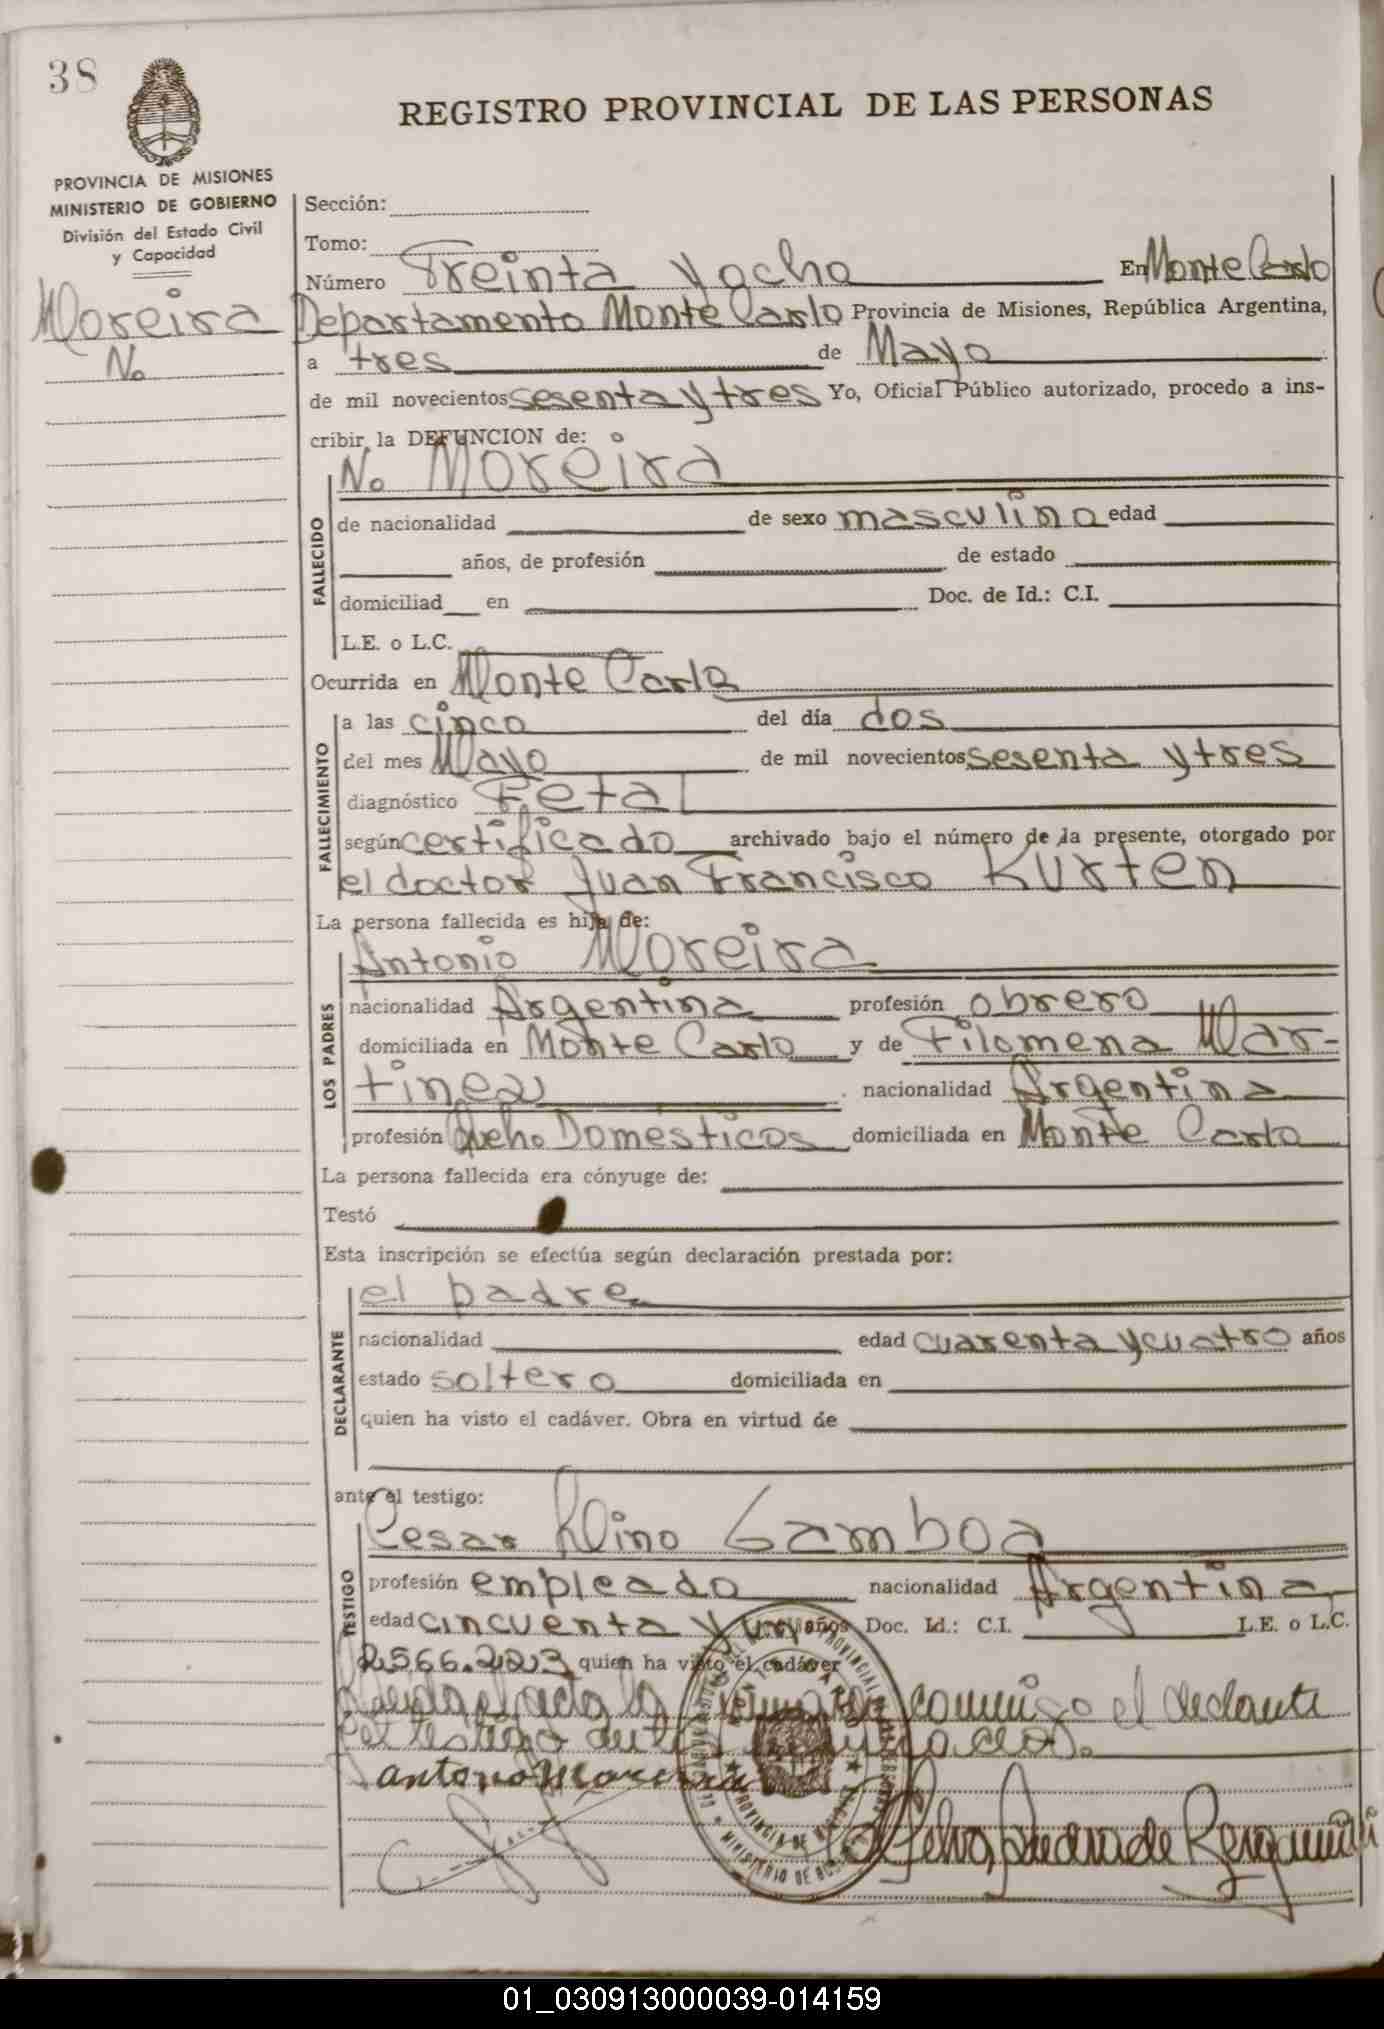 38
REGISTRO PROVINCIAL DE LAS PERSONAS
PROVINCIA DE MISIONES
MINISTERIO DE GOBIERNO
División del Estado Civil
y Capacidad
Moreira
N.
Sección:
Tomo:
Número Treinta y ocho En Monte Carlo
Departamento Monte Carlo Provincia de Misiones, República Argentina,
a tres de Mayo
de mil novecientos sesenta y tres Yo, Oficial Público autorizado, procedo a ins-
cribir la DEFUNCION de:
N. Moreira
FALLECIDO
de nacionalidad de sexo masculino edad
años, de profesión de estado
domiciliad en Doc. de Id.: C.I.
L.E. o L.C.
Ocurrida en Monte Carlo
FALLECIMIENTO
a las cinco del día dos
del mes Mayo de mil novecientos sesenta y tres
diagnóstico Fetal
según certificado archivado bajo el número de la presente, otorgado por
el doctor Juan Francisco Kurten
La persona fallecida es hija de:
LOS PADRES
Antonio Moreira
nacionalidad Argentina profesión obrero
domiciliada en Monte Carlo y de Filomena Mar-
tinez nacionalidad Argentina
profesión Queho Domésticos domiciliada en Monte Carlo
La persona fallecida era cónyuge de:
Testó
Esta inscripción se efectúa según declaración prestada por:
DECLARANTE
el padre
nacionalidad edad cuarenta y cuatro años
estado soltero domiciliada en
quien ha visto el cadáver. Obra en virtud de
ante el testigo:
TESTIGO
Cesar Gamboa
profesión empleado nacionalidad Argentina
edad cincuenta y un años Doc. Id.: C.I. L.E. o L.C.
2.566.223 quien ha visto el cadáver
Leida el acta la conmigo el declarante
y el testigo
antonio Moreira
01_030913000039-014159